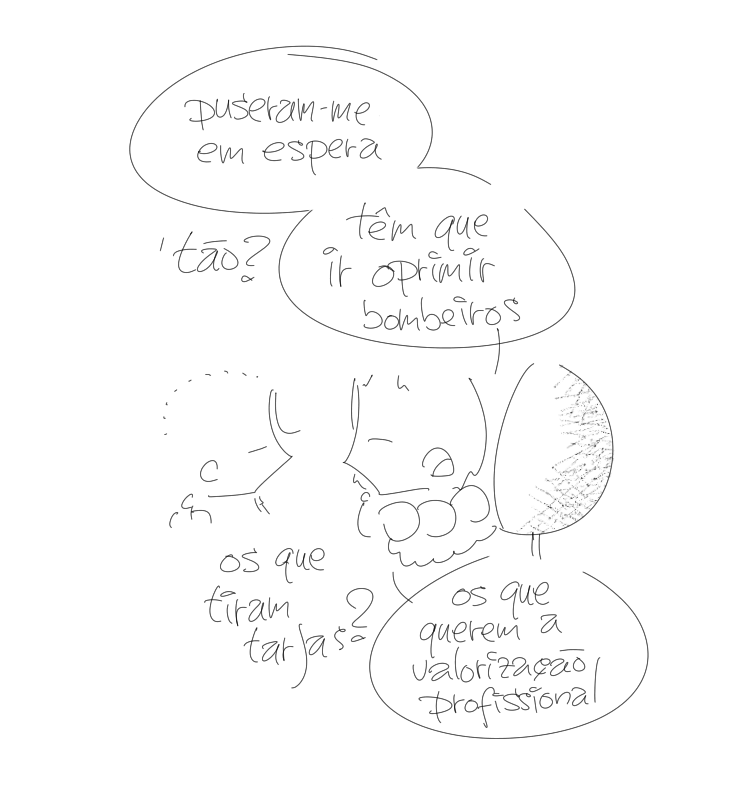 puseram-me
em espera
'tão?
têm que
ir oprimir
bombeiros
os que
tiram
tarjas?
os que
querem a
valorização
profissional